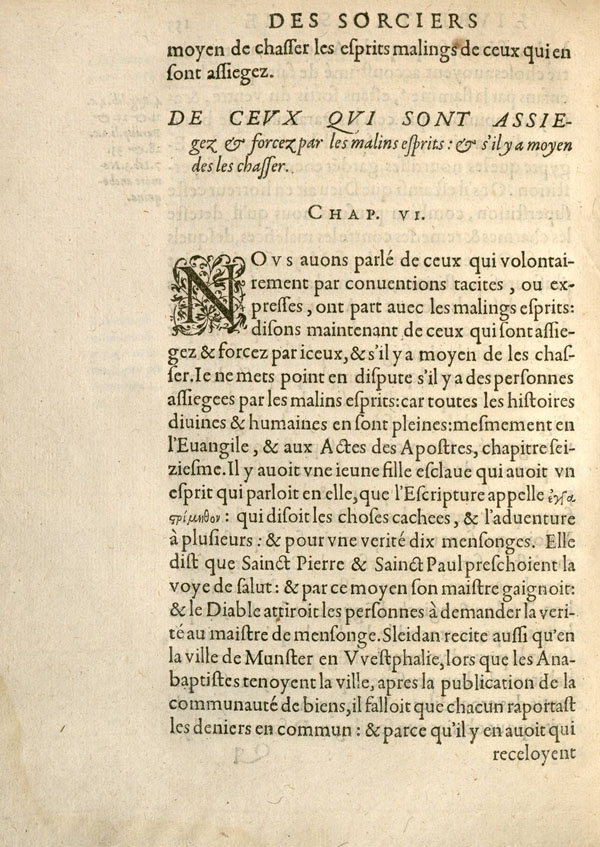 DES SORCIERS
moyen de chaſſer les eſprits malings de ceux qui en
ſont aſſiegez.
DE CEVX QVI SONT ASSIE-
gez & forcez par les malins eſprits : & s'il y a moyen
des les chaſſer.
CHAP. VI.
NOVS auons parlé de ceux qui volontai-
rement par conuentions tacites , ou ex-
preſſes, ont part auec les malings eſprits:
diſons maintenant de ceux qui ſont aſſie-
gez & forcez par iceux, & s'il y a moyen de les chaſ-
ſer. Ie ne mets point en diſpute s'il y a des perſonnes
aſſiegees par les malins eſprits: car toutes les hiſtoires
diuines & humaines en ſont pleines: meſmement en
l'Euangile , & aux Actes des Apoſtres, chapitre ſei-
zieſme. Il y auoit vne ieune fille eſclaue qui auoit vn
eſprit qui parloit en elle, que l'Eſcripture appelle ἐγγα
ςρίμηθον : qui diſoit les choſes cachees, & l'aduenture
à pluſieurs : & pour vne verité dix menſonges. Elle
diſt que Sainct Pierre & Sainct Paul preſchoient la
voye de ſalut : & par ce moyen ſon maiſtre gaignoit:
& le Diable attiroit les perſonnes à demander la veri-
té au maiſtre de menſonge. Sleidan recite auſſi qu'en
la ville de Munſter en VVeſtphalie, lors que les Ana-
baptiſtes tenoyent la ville, apres la publication de la
communauté de biens, il falloit que chacun raportaſt
les deniers en commun : & parce qu'il y en auoit qui
receloyent